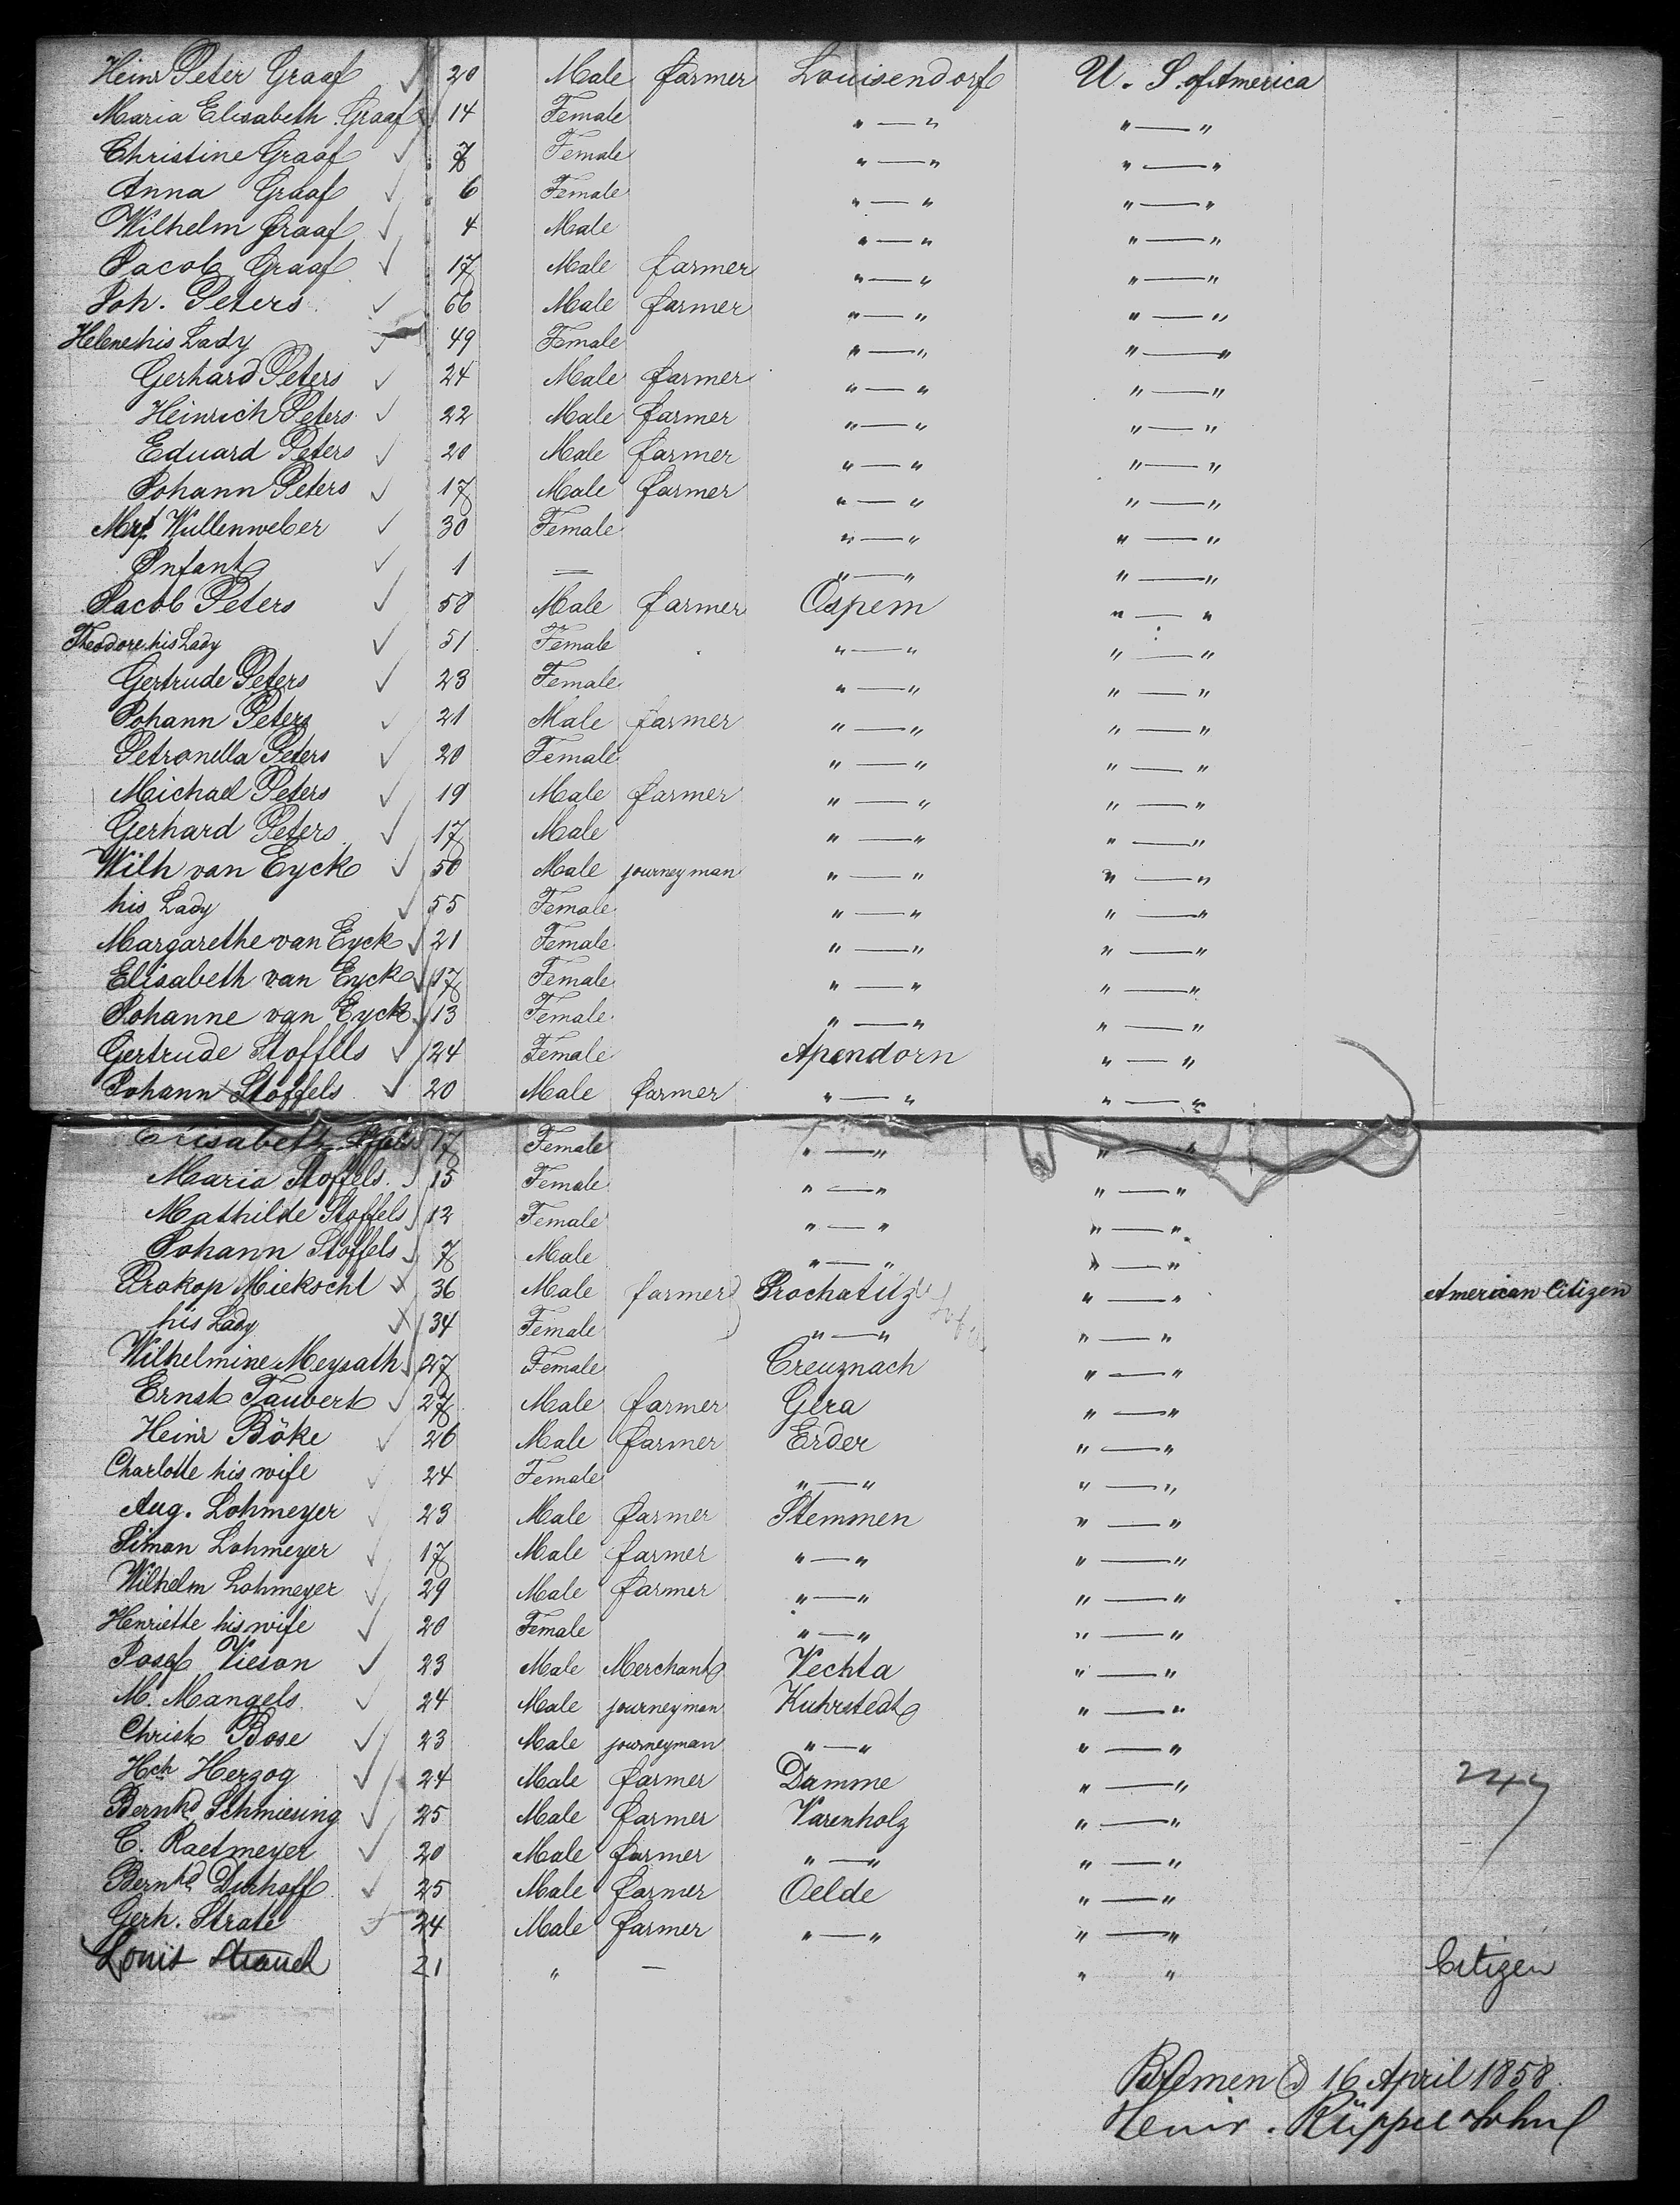 Heinr Peter Graaf 20 Male farmer Louisendorf U. S. of America
Maria Elisabeth Graaf 14 Female " — " " — "
Christine Graaf 7 Female " — " " — "
Anna Graaf 6 Female " — " " — "
Wilhelm Graaf 4 Male " — " " — "
Jacob Graaf 17 Male farmer " — " " — "
Joh. Peters 66 Male farmer " — " " — "
Helene his Lady 49 Female " — " " — "
Gerhard Peters 24 Male farmer " — " " — "
Heinrich Peters 22 Male farmer " — " " — "
Eduard Peters 20 Male farmer " — " " — "
Johann Peters 17 Male farmer " — " " — "
Mrs. Wullenweber 30 Female " — " " — "
Infant 1 — " — " " — "
Jacob Peters 58 Male farmer Ospem " — "
Theodore his Lady 51 Female " — " " — "
Gertrude Peters 23 Female " — " " — "
Johann Peters 21 Male farmer " — " " — "
Petronella Peters 20 Female " — " " — "
Michael Peters 19 Male farmer " — " " — "
Gerhard Peters 17 Male " — " " — "
Wilh van Eyck 50 Male journeyman " — " " — "
his Lady 55 Female " — " " — "
Margarethe van Eyck 21 Female " — " " — "
Elisabeth van Eyck 17 Female " — " " — "
Johanne van Eyck 13 Female " — " " — "
Gertrude Stoffels 24 Female Apendorn " — "
Johann Stoffels 20 Male farmer " — " " — "
Elisabeth Stoffels 17 Female " — " " — "
Maria Stoffels 15 Female " — " " — "
Mathilde Stoffels 12 Female " — " " — "
Johann Stoffels 7 Male " — " " — "
Prokop Miekocht 36 Male farmer Prochatitz " — " American Citizen
his Lady 34 Female " — " " — "
Wilhelmine Meysath 27 Female Creuznach " — "
Ernst Taubert 27 Male farmer Gera " — "
Heinr Böke 26 Male farmer Erder " — "
Charlotte his wife 24 Female " — " " — "
Aug. Lohmeyer 23 Male farmer Stemmen " — "
Simon Lohmeyer 17 Male farmer " — " " — "
Wilhelm Lohmeyer 29 Male farmer " — " " — "
Henriette his wife 20 Female " — " " — "
Josef Vieson 23 Male Merchant Vechta " — "
M. Mangels 24 Male journeyman Kuhrstedt " — "
Christ Bose 23 Male journeyman " — " " — "
Hch Herzog 24 Male farmer Damme " — " 247
Bernhd Schmiesing 25 Male farmer Varenholz " — "
C. Raetmeyer 20 Male farmer " — " " — "
Bernhd Durhoff 25 Male farmer Oelde " — "
Gerh. Strate 24 Male farmer " — " " — "
Louis 21 " — " " Citizen
Bremen 16 April 1858.
Heinr. Küppel Sohn